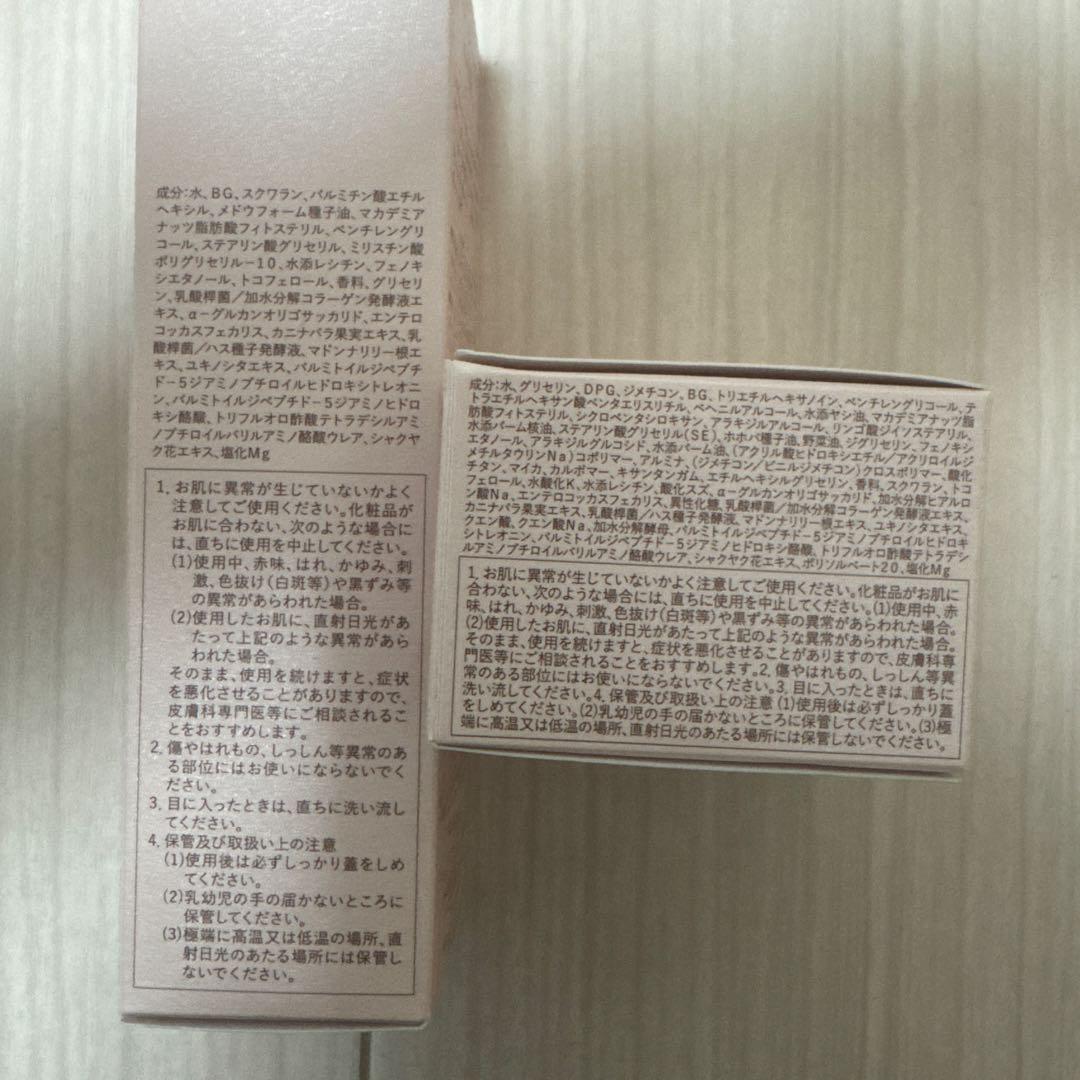 成分:水、BG、スクワラン、パルミチン酸エチル
ヘキシル、メドウフォーム種子油、マカデミア
ナッツ脂肪酸フィトステリル、ペンチレングリ
コール、ステアリン酸グリセリル、ミリスチン酸
ポリグリセリル-10、水添レシチン、フェノキ
シエタノール、トコフェロール、香料、グリセリ
ン、乳酸桿菌/加水分解コラーゲン発酵液エ
キス、α-グルカンオリゴサッカリド、エンテロ
コッカスフェカリス、カニナバラ果実エキス、乳
酸桿菌/ハス種子発酵液、マドンナリリー根エ
キス、ユキノシタエキス、パルミトイルジペプチ
ド-5ジアミノブチロイルヒドロキシトレオニ
ン、パルミトイルジペプチド-5ジアミノヒドロ
キシ酪酸、トリフルオロ酢酸テトラデシルアミ
ノブチロイルバリルアミノ酪酸ウレア、シャクヤ
ク花エキス、塩化Mg
1. お肌に異常が生じていないかよく
注意してご使用ください。化粧品が
お肌に合わない、次のような場合に
は、直ちに使用を中止してください。
(1)使用中、赤味、はれ、かゆみ、刺
激、色抜け(白斑等)や黒ずみ等
の異常があらわれた場合。
(2)使用したお肌に、直射日光があ
たって上記のような異常があら
われた場合。
そのまま、使用を続けますと、症状
を悪化させることがありますので、
皮膚科専門医等にご相談されるこ
とをおすすめします。
2. 傷やはれもの、しっしん等異常のあ
る部位にはお使いにならないでく
ださい。
3. 目に入ったときは、直ちに洗い流し
てください。
4. 保管及び取扱い上の注意
(1)使用後は必ずしっかり蓋をしめ
てください。
(2)乳幼児の手の届かないところに
保管してください。
(3)極端に高温又は低温の場所、直
射日光のあたる場所には保管し
ないでください。
成分:水、グリセリン、DPG、ジメチコン、BG、トリエチルヘキサノイン、ペンチレングリコール、テ
トラエチルヘキサン酸ペンタエリスリチル、ベヘニルアルコール、水添ヤシ油、マカデミアナッツ脂
肪酸フィトステリル、シクロペンタシロキサン、アラキジルアルコール、リンゴ酸ジイソステアリル、
水添パーム核油、ステアリン酸グリセリル(SE)、ホホバ種子油、野菜油、ジグリセリン、フェノキシ
エタノール、アラキジルグルコシド、水添パーム油、(アクリル酸ヒドロキシエチル/アクリロイルジ
メチルタウリンNa)コポリマー、アルミナ、(ジメチコン/ビニルジメチコン)クロスポリマー、酸化
チタン、マイカ、カルボマー、キサンタンガム、エチルヘキシルグリセリン、香料、スクワラン、トコ
フェロール、水酸化K、水添レシチン、酸化スズ、α-グルカンオリゴサッカリド、加水分解ヒアルロ
ン酸Na、エンテロコッカスフェカリス、異性化糖、乳酸桿菌/加水分解コラーゲン発酵液エキス、
カニナバラ果実エキス、乳酸桿菌/ハス種子発酵液、マドンナリリー根エキス、ユキノシタエキス、
クエン酸、クエン酸Na、加水分解酵母、パルミトイルジペプチド-5ジアミノブチロイルヒドロキ
シトレオニン、パルミトイルジペプチド-5ジアミノヒドロキシ酪酸、トリフルオロ酢酸テトラデシ
ルアミノブチロイルバリルアミノ酪酸ウレア、シャクヤク花エキス、ポリソルベート20、塩化Mg
1. お肌に異常が生じていないかよく注意してご使用ください。化粧品がお肌に
合わない、次のような場合には、直ちに使用を中止してください。(1)使用中、赤
味、はれ、かゆみ、刺激、色抜け(白斑等)や黒ずみ等の異常があらわれた場合。
(2)使用したお肌に、直射日光があたって上記のような異常があらわれた場合。
そのまま、使用を続けますと、症状を悪化させることがありますので、皮膚科専
門医等にご相談されることをおすすめします。2. 傷やはれもの、しっしん等異
常のある部位にはお使いにならないでください。3. 目に入ったときは、直ちに
洗い流してください。4. 保管及び取扱い上の注意 (1)使用後は必ずしっかり蓋
をしめてください。(2)乳幼児の手の届かないところに保管してください。(3)極
端に高温又は低温の場所、直射日光のあたる場所には保管しないでください。